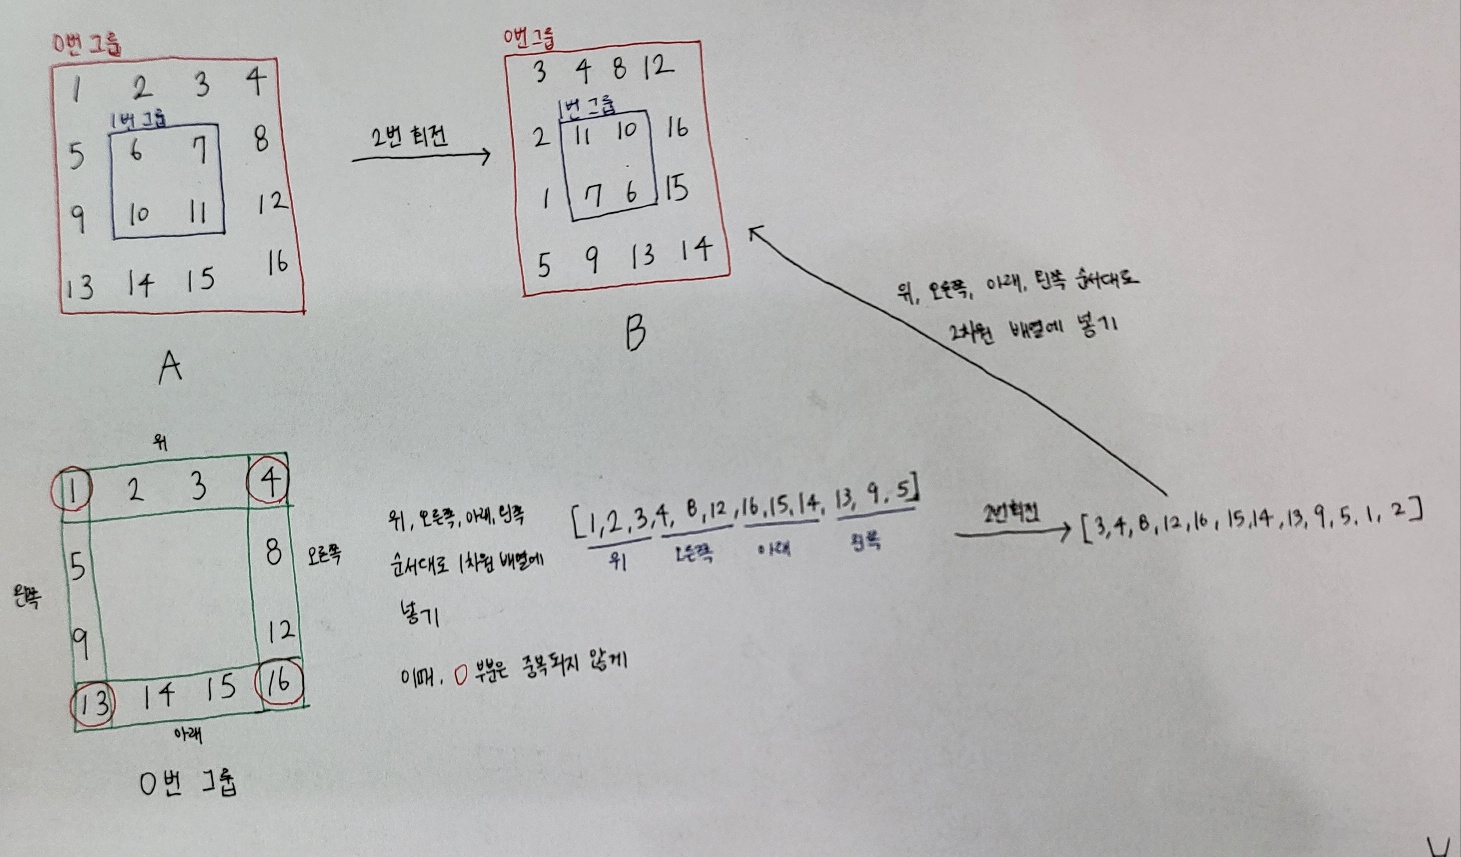 0번 그룹
1 2 3 4
1번 그룹
5 6 7 8
9 10 11 12
13 14 15 16
A
2번 회전
0번 그룹
3 4 8 12
1번 그룹
2 11 10 16
1 7 6 15
5 9 13 14
B
위, 오른쪽, 아래, 왼쪽 순서대로
2차원 배열에 넣기
위
1 2 3 4
왼쪽
5 8
오른쪽
9 12
13 14 15 16
아래
0번 그룹
위, 오른쪽, 아래, 왼쪽
순서대로 1차원 배열에
넣기
이때, O 부분은 중복되지 않게
[1, 2, 3, 4, 8, 12, 16, 15, 14, 13, 9, 5]
위 오른쪽 아래 왼쪽
2번 회전
[3, 4, 8, 12, 16, 15, 14, 13, 9, 5, 1, 2]